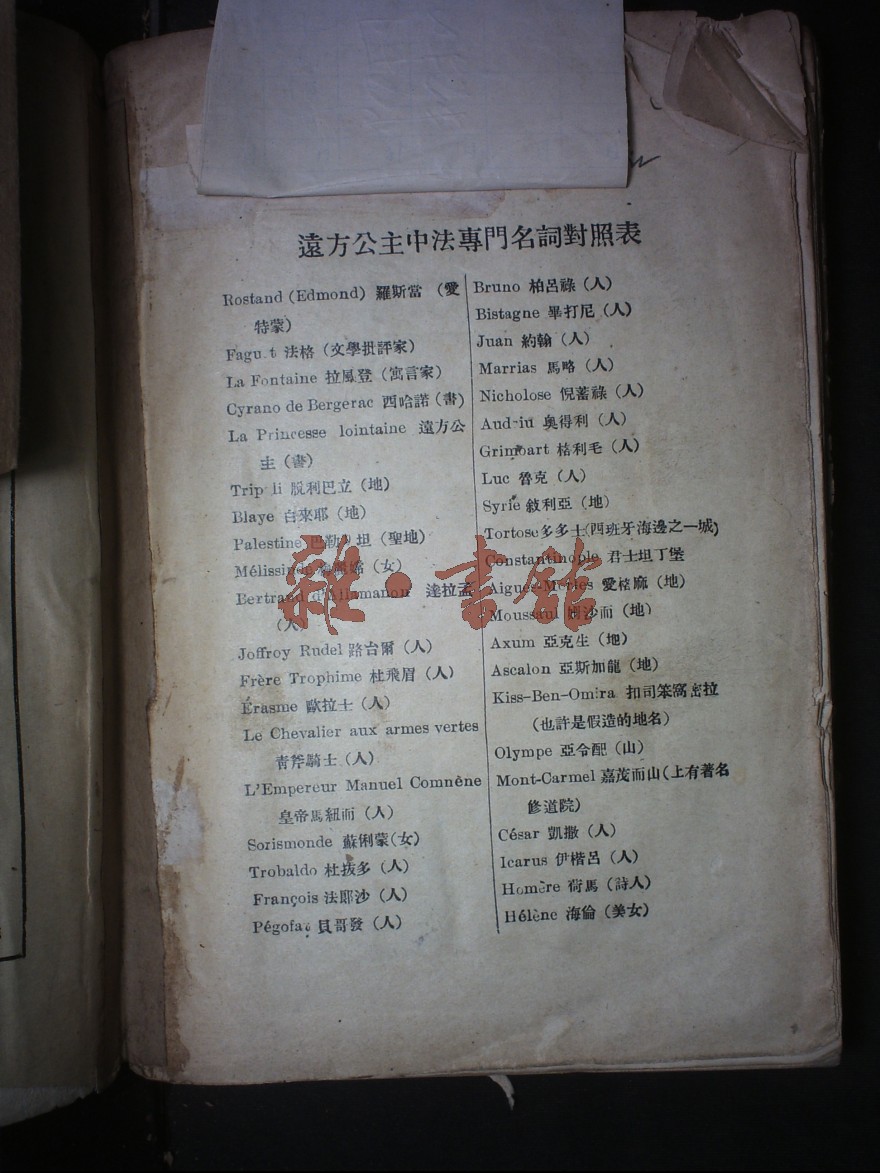 遠方公主中法專門名詞對照表
Rostand (Edmond) 羅斯當 (愛
特蒙)
法格 (文學批評家)
La Fontaine 拉風登 (寓言家)
Cyrano de Bergerac 西哈諾 (書)
La Princesse lointaine 遠方公
主 (書)
脱利巴立 (地)
Blaye 白來耶 (地)
Palestine 巴勒 坦 (聖地)
(女)
Bertrand 達拉孟
(人)
Joffroy Rudel 路台爾 (人)
Frère Trophime 杜飛眉 (人)
Érasme 歐拉士 (人)
Le Chevalier aux armes vertes
青斧騎士 (人)
L'Empereur Manuel Comnène
皇帝馬紐而 (人)
Sorismonde 蘇俐蒙 (女)
Trobaldo 杜拔多 (人)
François 法郎沙 (人)
貝哥發 (人)
Bruno 柏呂祿 (人)
Bistagne 畢打尼 (人)
Juan 約翰 (人)
Marrias 馬略 (人)
Nicholose 倪蓄祿 (人)
奥得利 (人)
Grimoart 格利毛 (人)
Luc 魯克 (人)
Syrie 敍利亞 (地)
Tortose 多多士 (西班牙海邊之一城)
Constantinople 君士坦丁堡
Aigues-Mortes (地)
Moussoul 沙而 (地)
Axum 亞克生 (地)
Ascalon 亞斯加龍 (地)
Kiss-Ben-Omira 扣司笨窩密拉
(也許是假造的地名)
Olympe 亞令配 (山)
Mont-Carmel 嘉茂而山 (上有著名
修道院)
César 凱撒 (人)
Icarus 伊楷呂 (人)
Homère 荷馬 (詩人)
Hélène 海倫 (美女)
雜·書館